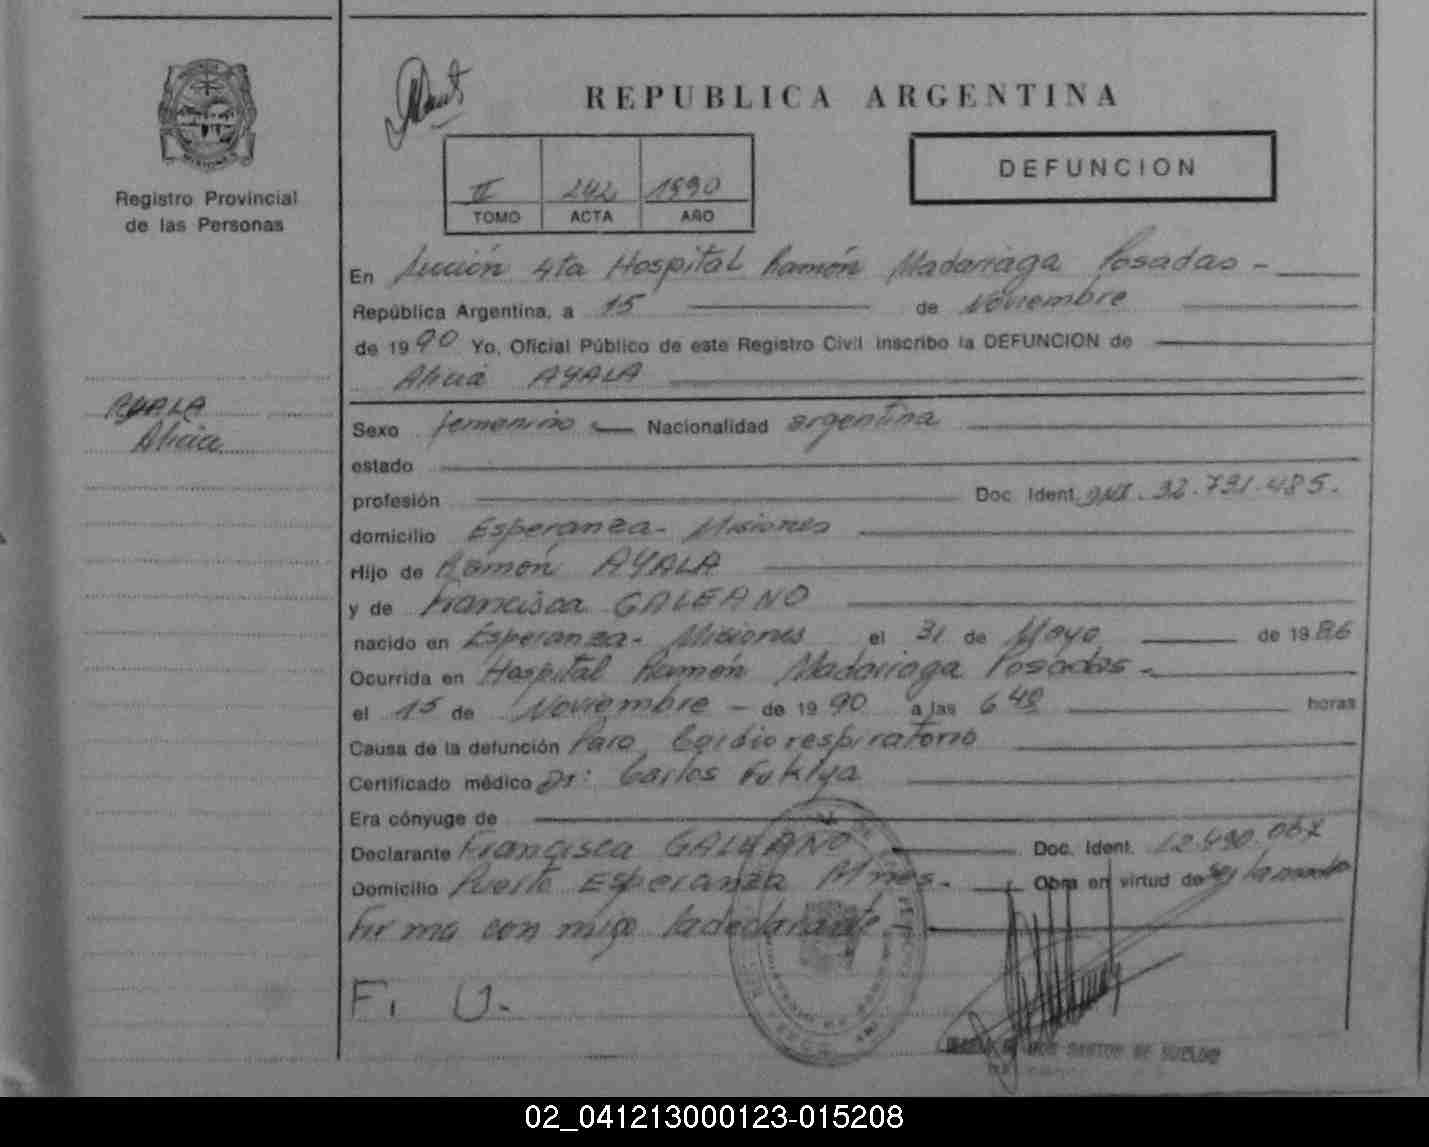 REPUBLICA ARGENTINA
II 242 1990
TOMO ACTA AÑO
DEFUNCION
MISIONES
Registro Provincial
de las Personas
AYALA
Alicia
En Sección 4ta Hospital Ramón Madariaga Posadas -
República Argentina, a 15 de Noviembre
de 1990 Yo, Oficial Público de este Registro Civil inscribo la DEFUNCION de
Alicia AYALA
Sexo femenino Nacionalidad argentina
estado
profesión Doc. Ident. DNI. 32.731.485.
domicilio Esperanza - Misiones
Hijo de Ramón AYALA
y de Francisca GALEANO
nacido en Esperanza - Misiones el 31 de Mayo de 1986
Ocurrida en Hospital Ramón Madariaga Posadas -
el 15 de Noviembre - de 1990 a las 6 40 horas
Causa de la defunción Paro Cardio respiratorio
Certificado médico Dr: Carlos Fukiya
Era cónyuge de
Declarante Francisca GALEANO Doc. Ident. 12.490.067
Domicilio Puerto Esperanza Mnes. - Obra en virtud de ser la madre
Firma con migo la declarante -
F. G.
DOS SANTOS DE SUELDO
02_041213000123-015208